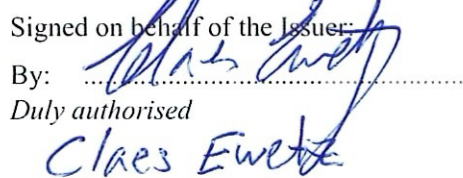 Signed on behalf of the Issuer:
By: ............................................................
Duly authorised
Claes